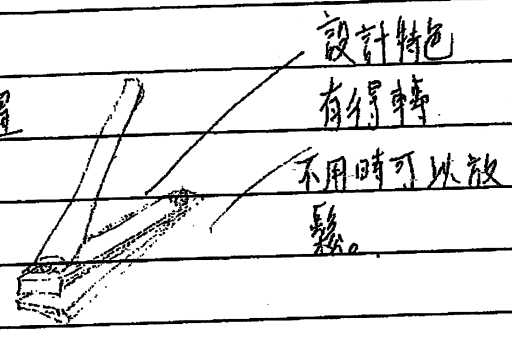 設計特色
有得轉
不用時可以放
鬆。